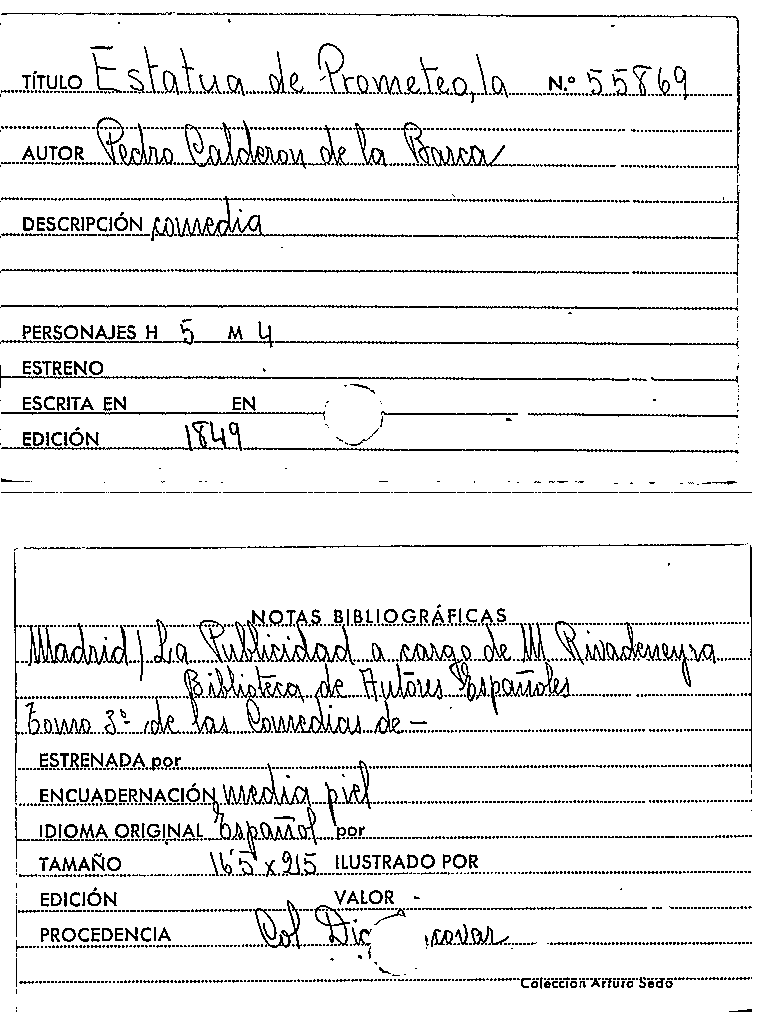 TÍTULO Estatua de Prometeo, la N.º 55869
AUTOR Pedro Calderon de la Barca
DESCRIPCIÓN comedia
PERSONAJES H 5 M 4
ESTRENO
ESCRITA EN EN
EDICIÓN 1849
NOTAS BIBLIOGRÁFICAS
Madrid / La Publicidad a cargo de M Rivadeneyra
Biblioteca de Autores Españoles
Tomo 3º de las Comedias de —
ESTRENADA por
ENCUADERNACIÓN media piel
IDIOMA ORIGINAL Español por
TAMAÑO 16'5 x 21'5 ILUSTRADO POR
EDICIÓN VALOR -
PROCEDENCIA Col
Colección Arturo Sedó